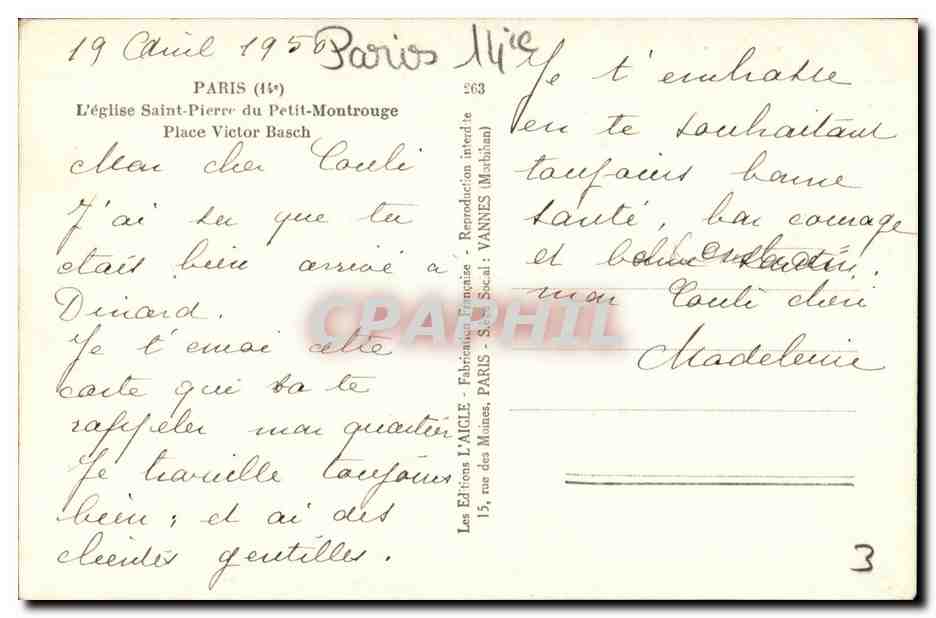 19 Avril 1950
Paris 14ie
PARIS (14e)
L'église Saint-Pierre du Petit-Montrouge
Place Victor Basch
Mon cher Louli
J'ai su que tu
étais bien arrivé à
Dinard.
Je t'envoi cette
carte qui va te
rappeler mon quartier
Je travaille toujours
bien ; et ai des
clientes gentilles.
263
Les Editions L'AIGLE - Fabrication Française - Reproduction interdite
15, rue des Moines, PARIS - Siège Social : VANNES (Morbihan)
Je t'embrasse
en te souhaitant
toujours bonne
santé, bon courage
et
mon Louli chéri
Madeleine
3
CPARPHIL